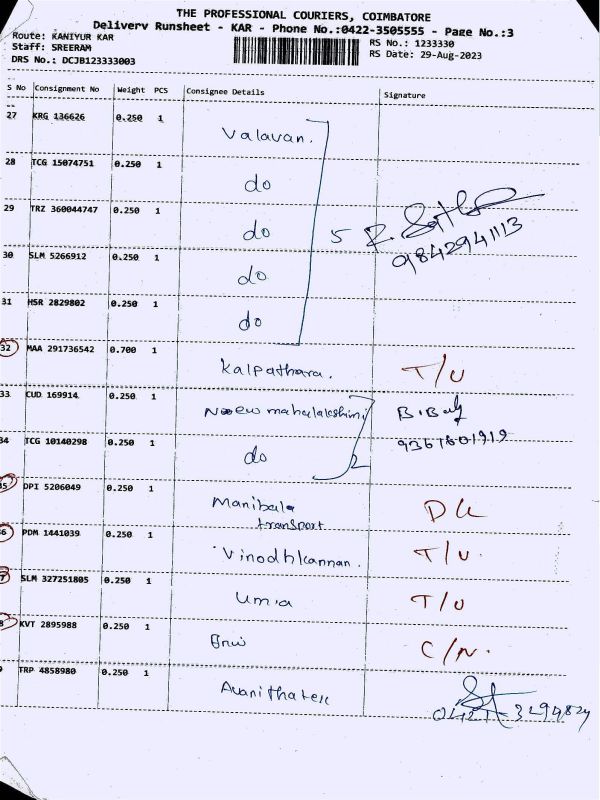 THE PROFESSIONAL COURIERS, COIMBATORE
Delivery Runsheet - KAR - Phone No.:0422-3505555 - Page No.:3
Route: KANIYUR KAR
RS No.: 1233330
Staff: SREERAM
RS Date: 29-Aug-2023
DRS No.: DCJB123333003
S No Consignment No Weight PCS Consignee Details Signature
27 KRG 136626 0.250 1 Valavan.
28 TCG 15074751 0.250 1 do
29 TRZ 360044747 0.250 1 do 5
9842941113
30 SLM 5266912 0.250 1 do
31 HSR 2829802 0.250 1 do
32 MAA 291736542 0.700 1 Kalpathara. T/U
33 CUD 169914 0.250 1 New mahalakshimi
34 TCG 10140298 0.250 1 do 2 9367801919
35 DPI 5206049 0.250 1 Manibala transport DL
36 PDM 1441039 0.250 1 Vinodhkannan. T/U.
37 SLM 327251805 0.250 1 Umia T/U
38 KVT 2895988 0.250 1 C/N.
TRP 4858980 0.250 1
0421-3294824